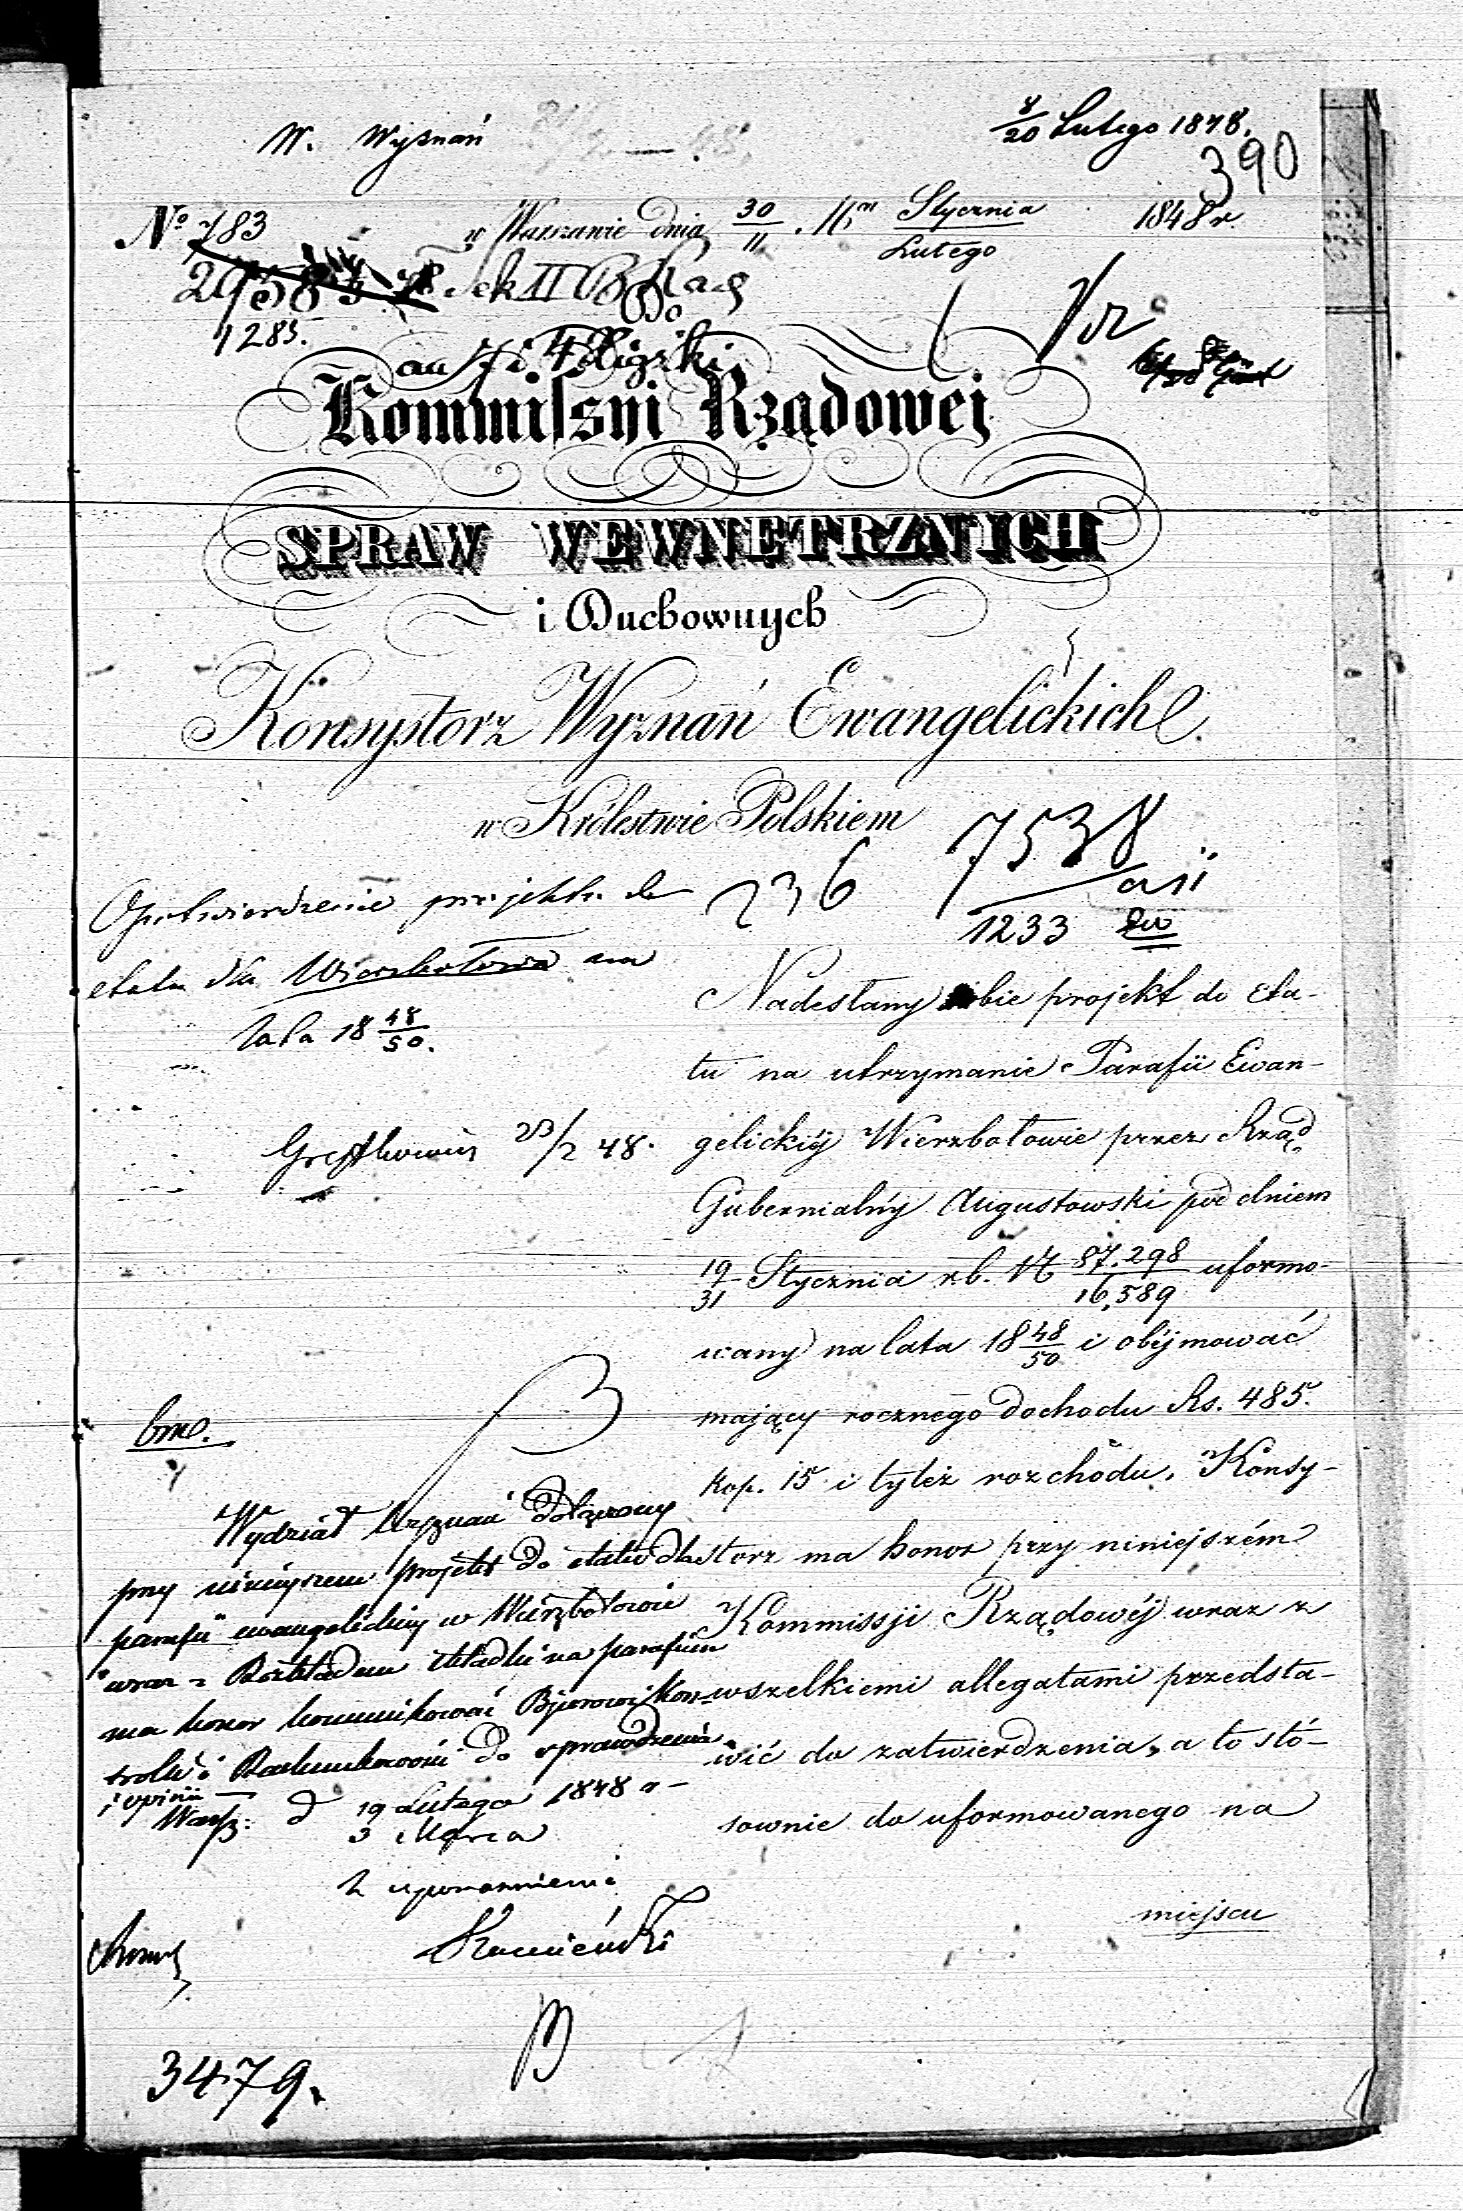 W. Wyznań
8/20 Lutego 1848.
390
No 783
w Warszawie dnia 30/11 Mca Stycznia/Lutego 1848 r.
1285.
Do
Kommissyi Rządowej
SPRAW WEWNĘTRZNYCH
i Duchownych
Konsystorz Wyznań Ewangelickich
w Królestwie Polskiem
7538
236
1233
O potwierdzenie projektu do
etatu dla Wierzbołowa na
lata 18 48/50.
23/2 48.
Nadesłany sobie projekt do eta-
tu na utrzymanie Parafii Ewan-
gelickiéj Wierzbołowie przez Rząd
Gubernialny Augustowski pod dniem
19/31 Stycznia r.b. N 87.298/16,589 uformo-
wany na lata 18 48/50 i obéjmować
mający rocznego dochodu Rs. 485.
kop. 15 i tyleż rozchodu. Konsy-
storz ma honor przy niniejszém
Kommissji Rządowéj wraz z
wszelkiemi allegatami przedsta-
wić do zatwierdzenia, a to stó-
sownie do uformowanego na
miejscu
Wydział Wyznań dołączony
przy niniejszem projekt do etatu dla
parafii ewangelickiej w Wierzbołowie
wraz z Rozkładem składki na parafian
ma honor kommunikować Bjurowi Kon-
troli i Rachunkowości do sprawdzenia
i opinii
Warsz: d 19 Lutego/3 Marca 1848 r
Z upoważnienia
Kamieński
3479.